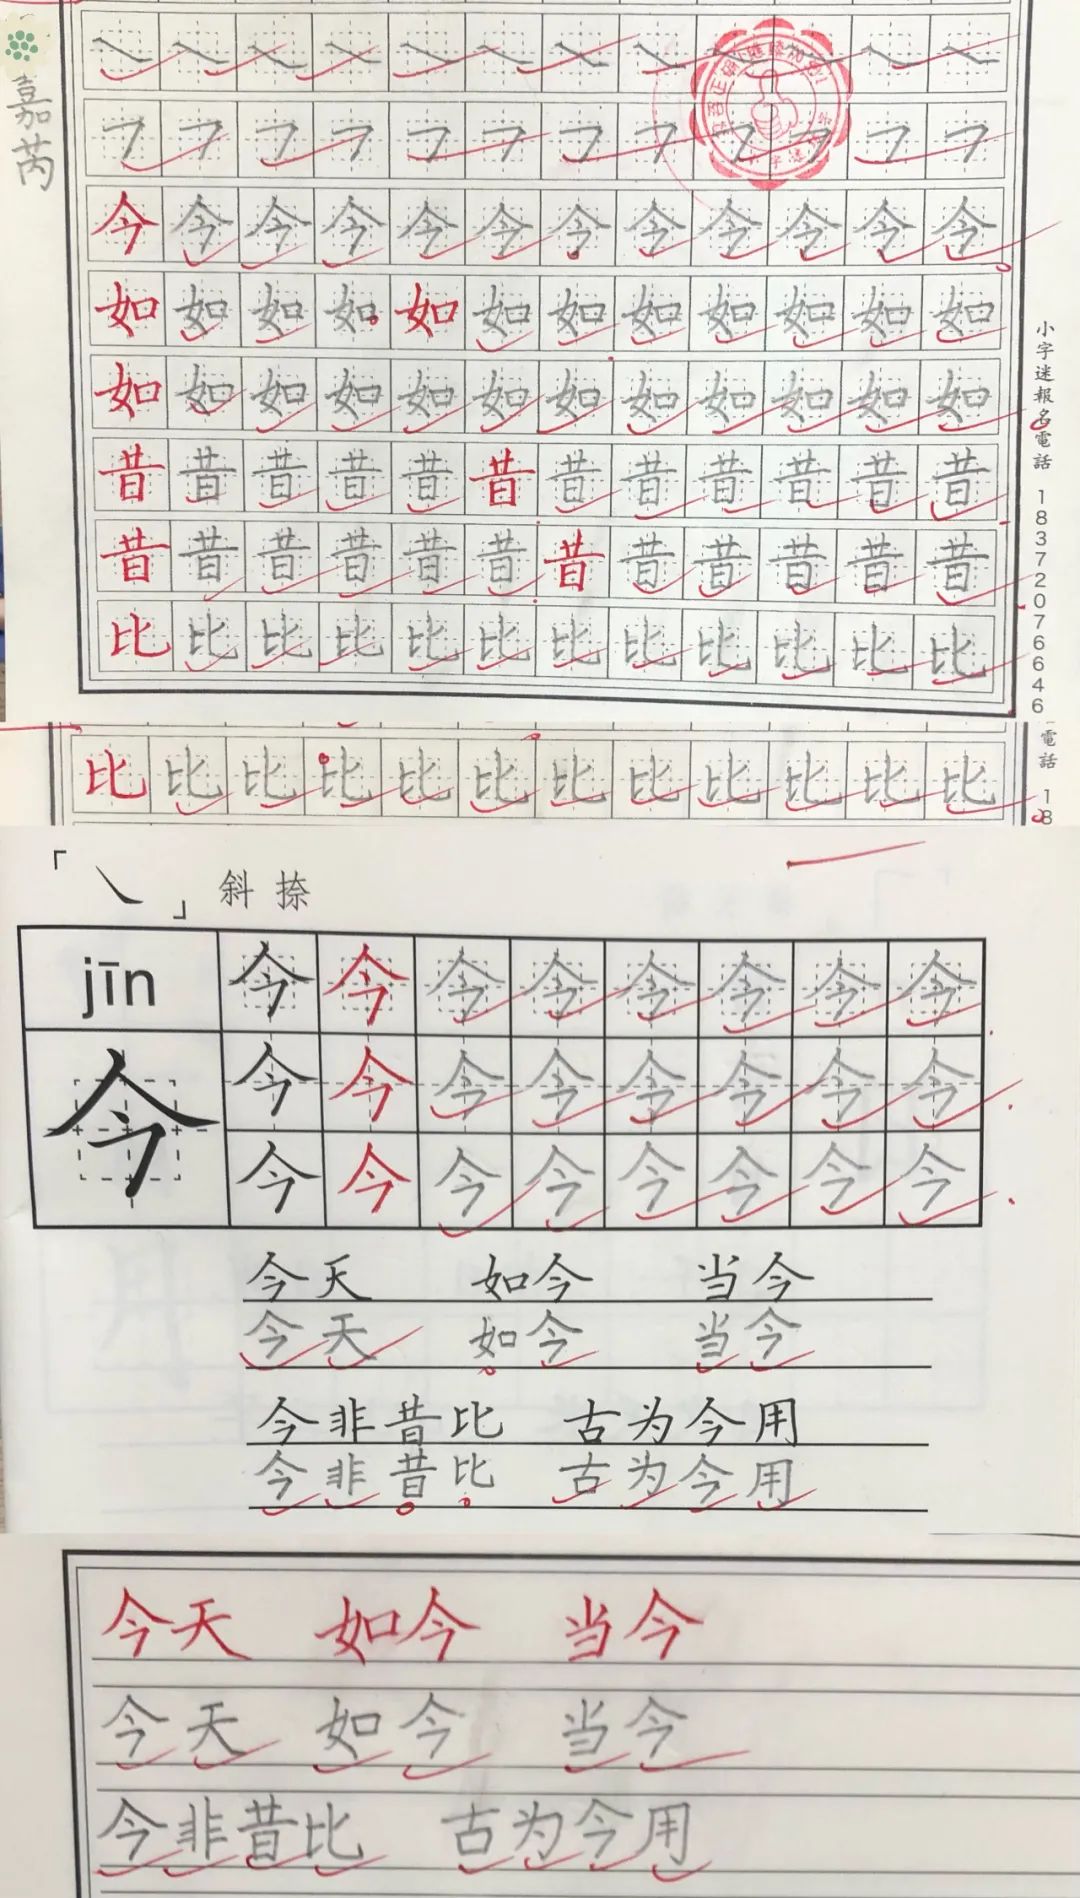 嘉芮
㇏ ㇏ ㇏ ㇏ ㇏ ㇏ ㇏ ㇏ ㇏ ㇏ ㇏ ㇏
㇇ ㇇ ㇇ ㇇ ㇇ ㇇ ㇇ ㇇ ㇇ ㇇ ㇇ ㇇
今今今今今今今今今今今今
如如如如如如如如如如如如
如如如如如如如如如如如如
昔昔昔昔昔昔昔昔昔昔昔昔
昔昔昔昔昔昔昔昔昔昔昔昔
比比比比比比比比比比比比
小字迷報名電話 18372076646
比比比比比比比比比比比比
電話 18
「㇏」斜捺
jīn 今今今今今今今今
今 今今今今今今今今
今今今今今今今今
今天 如今 当今
今天 如今 当今
今非昔比 古为今用
今非昔比 古为今用
今天 如今 当今
今天 如今 当今
今非昔比 古为今用